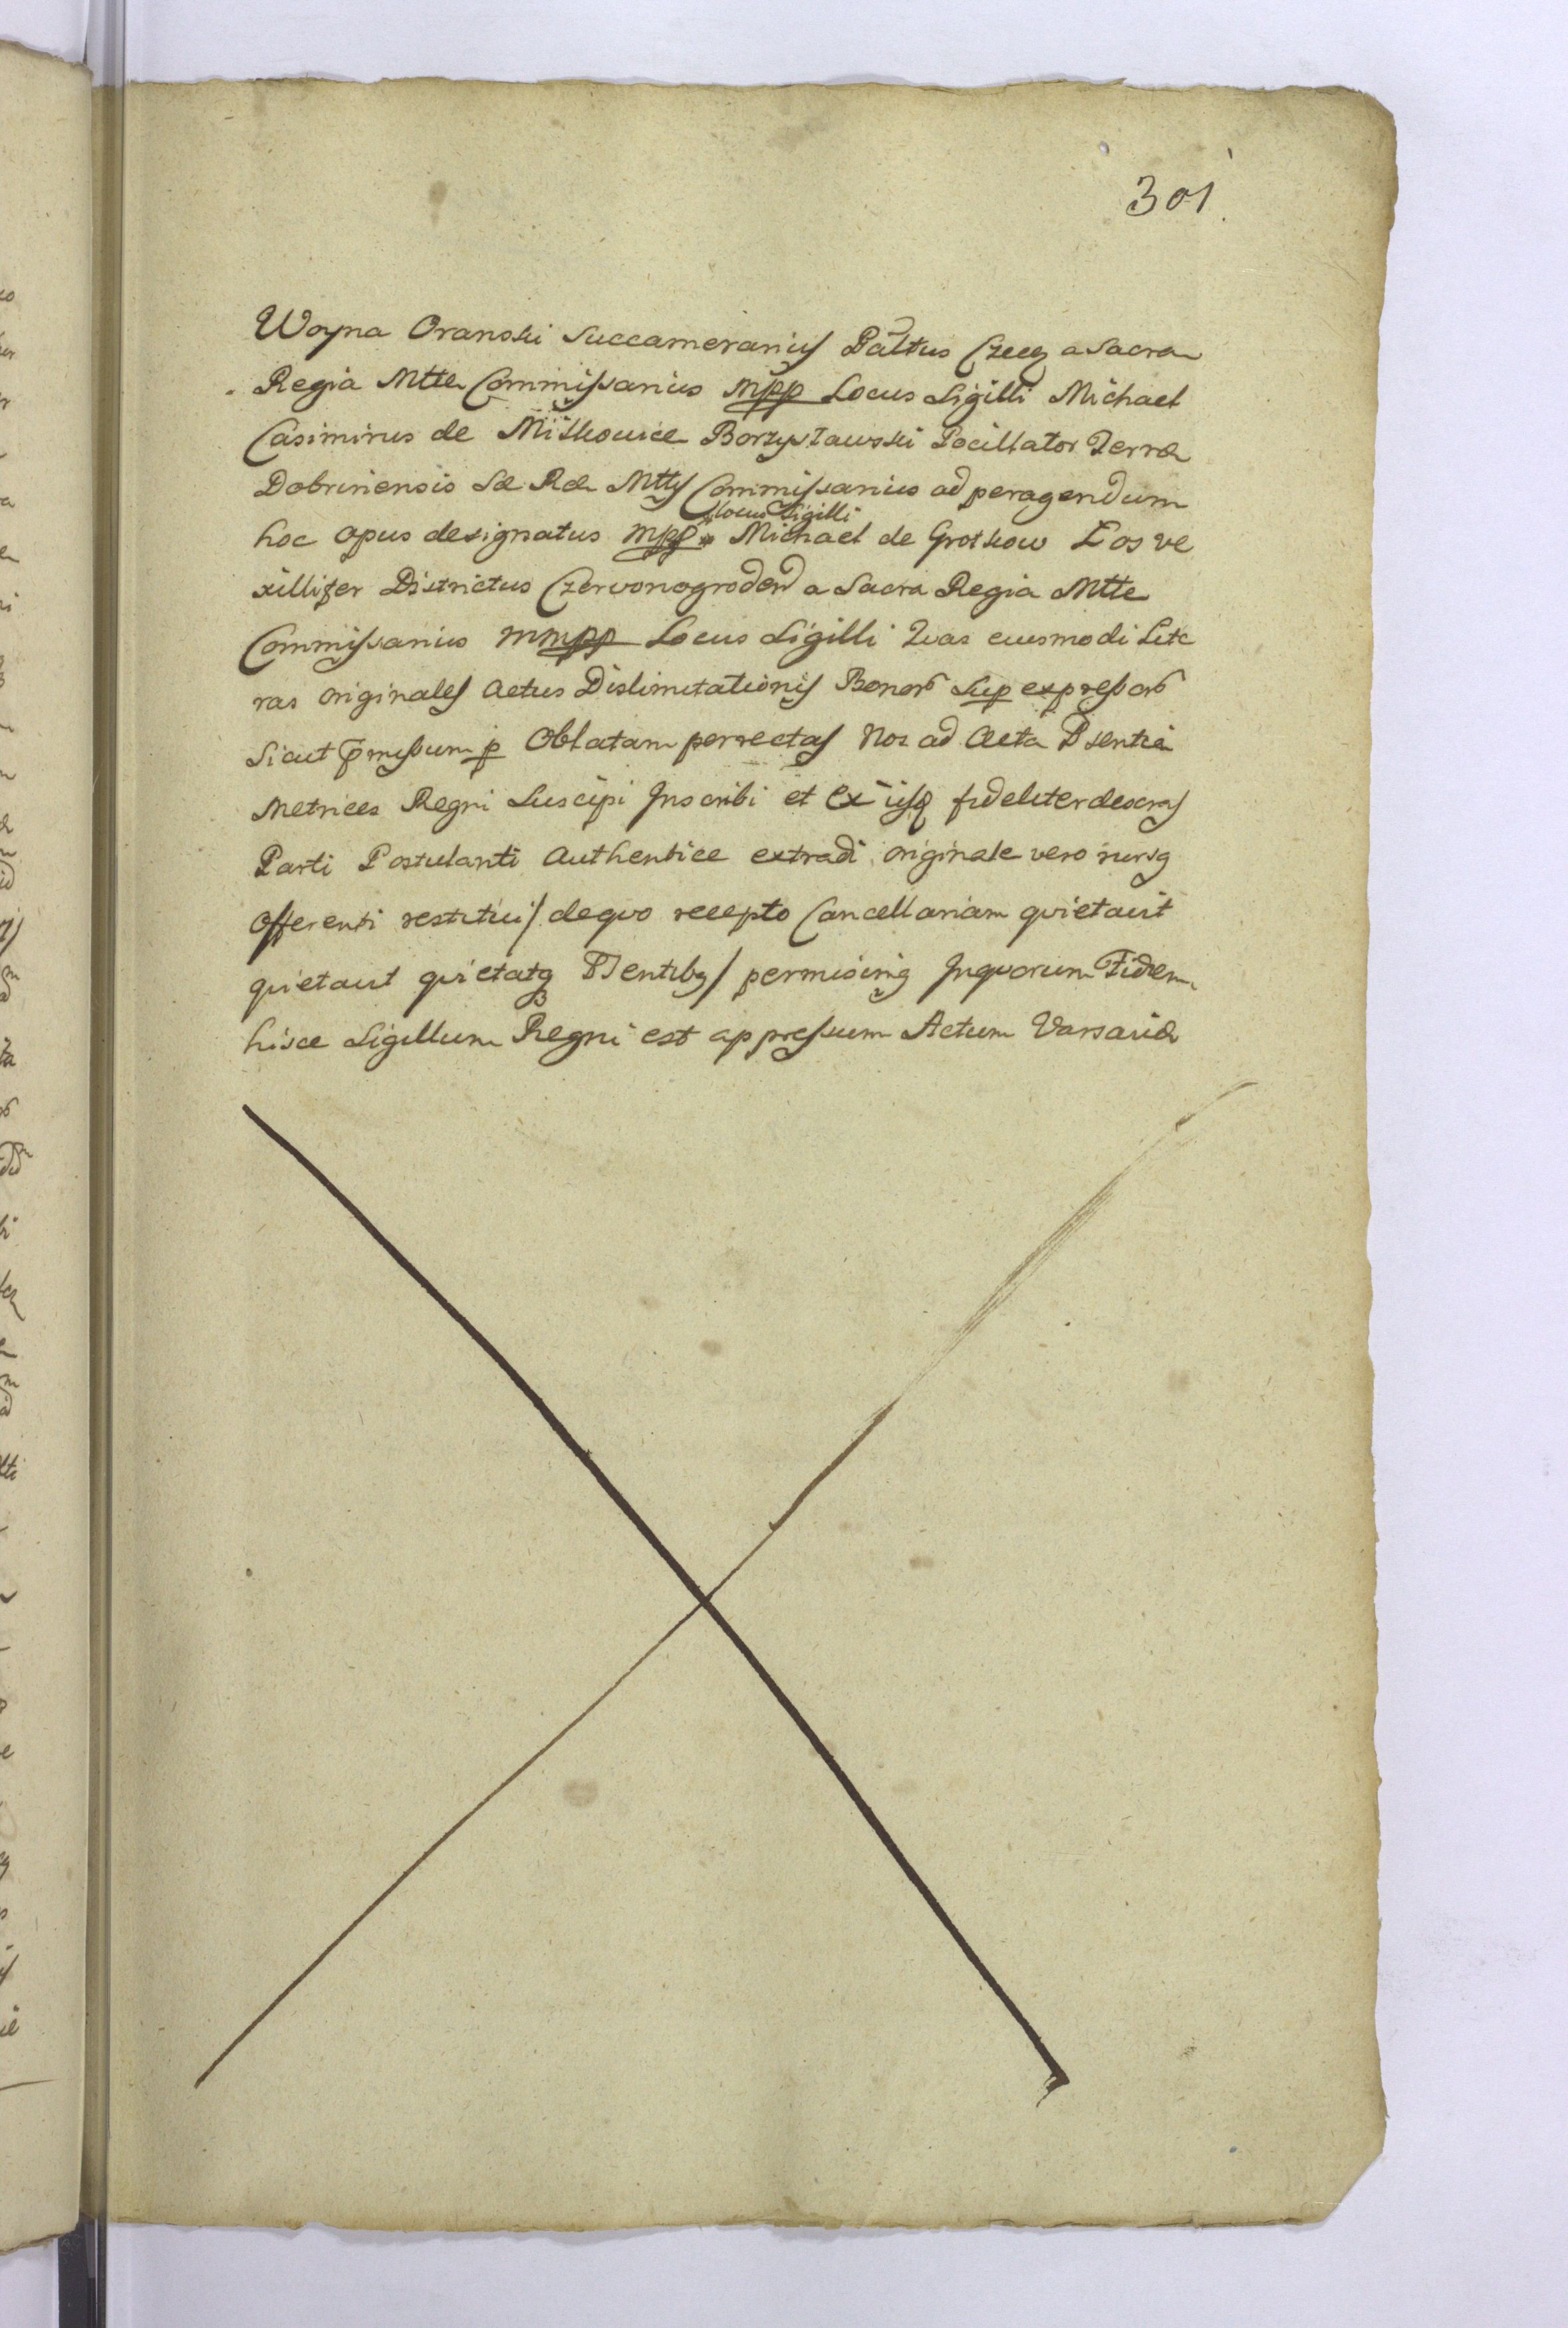 301
Woyna Oranski Succamerarius Paltus Czecz a Sacra
Regia Mtte Commissarius mpp Locus Sigilli Michael
Casimirus de Mitkowice Borzysławski Pocillator Terræ
Dobrinensis Sæ Ræ Mttis Commissarius ad peragendum
hoc opus designatus mpp Locus Sigilli Michael de Grotkow Łos ve
xillifer Districtus Czervonogroden a Sacra Regia Mtte
Commissarius mmpp Locus Sigilli Quas eiusmodi Lite
ras originales Actus Dislimitationis Bonor Sup expressor
Sicut pmissum p Oblatam porrectas Nos ad Acta Psentia
Metrices Regni Suscipi Inscribi et ex iisq fideliter descras
Parti Postulanti Authentice extradi originale vero rursq
offerenti restitui / de quo recepto Cancellariam quietavit
quietavit quietatq Psentibq / permisimq Inquorum Fidem
hisce Sigillum Regni est appressum Actum Varsaviæ